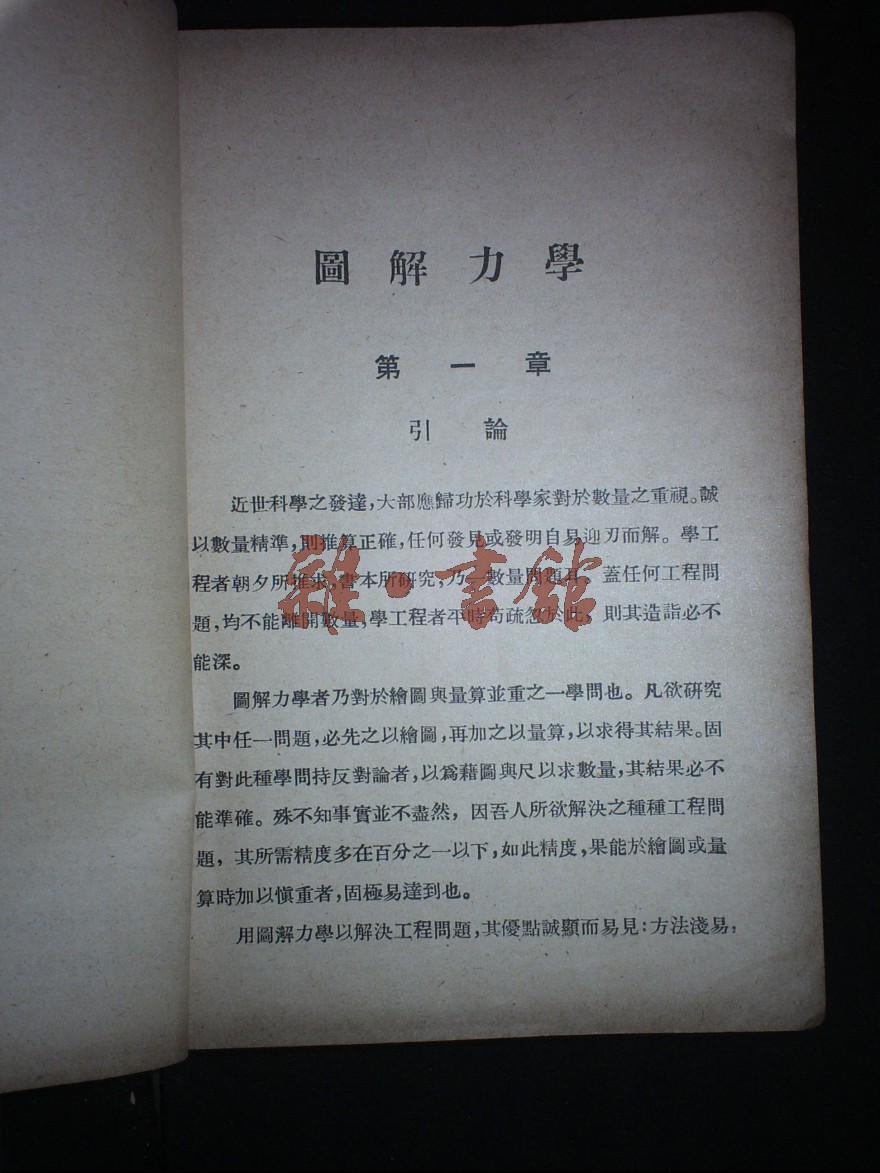 圖解力學
第一章
引論
近世科學之發達,大部應歸功於科學家對於數量之重視。誠
以數量精準,則推算正確,任何發見或發明自易迎刃而解。學工
程者朝夕所推求,書本所研究,乃一數量問題耳。蓋任何工程問
題,均不能離開數量,學工程者平時苟疏忽於此,則其造詣必不
能深。
圖解力學者乃對於繪圖與量算並重之一學問也。凡欲研究
其中任一問題,必先之以繪圖,再加之以量算,以求得其結果。固
有對此種學問持反對論者,以爲藉圖與尺以求數量,其結果必不
能準確。殊不知事實並不盡然,因吾人所欲解決之種種工程問
題,其所需精度多在百分之一以下,如此精度,果能於繪圖或量
算時加以愼重者,固極易達到也。
用圖解力學以解決工程問題,其優點誠顯而易見:方法淺易,
雜·書館